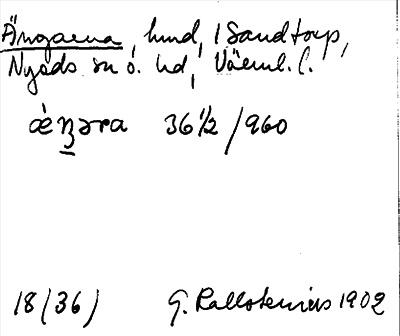 Ängarna, hmd, 1 Sandtorp,
Nyeds sn ö. hd, Värml. l.
ǽŋəra 36 1/2 /960
18 (36) G. Kallstenius 1902